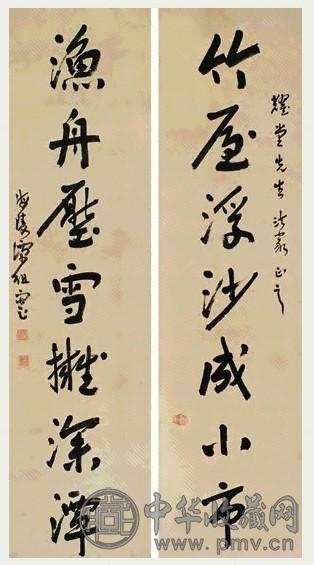 耀堂先生法家正之
竹屋浮沙成小市
漁舟壓雪擁深潭
中华收藏网
www.pmv.cn